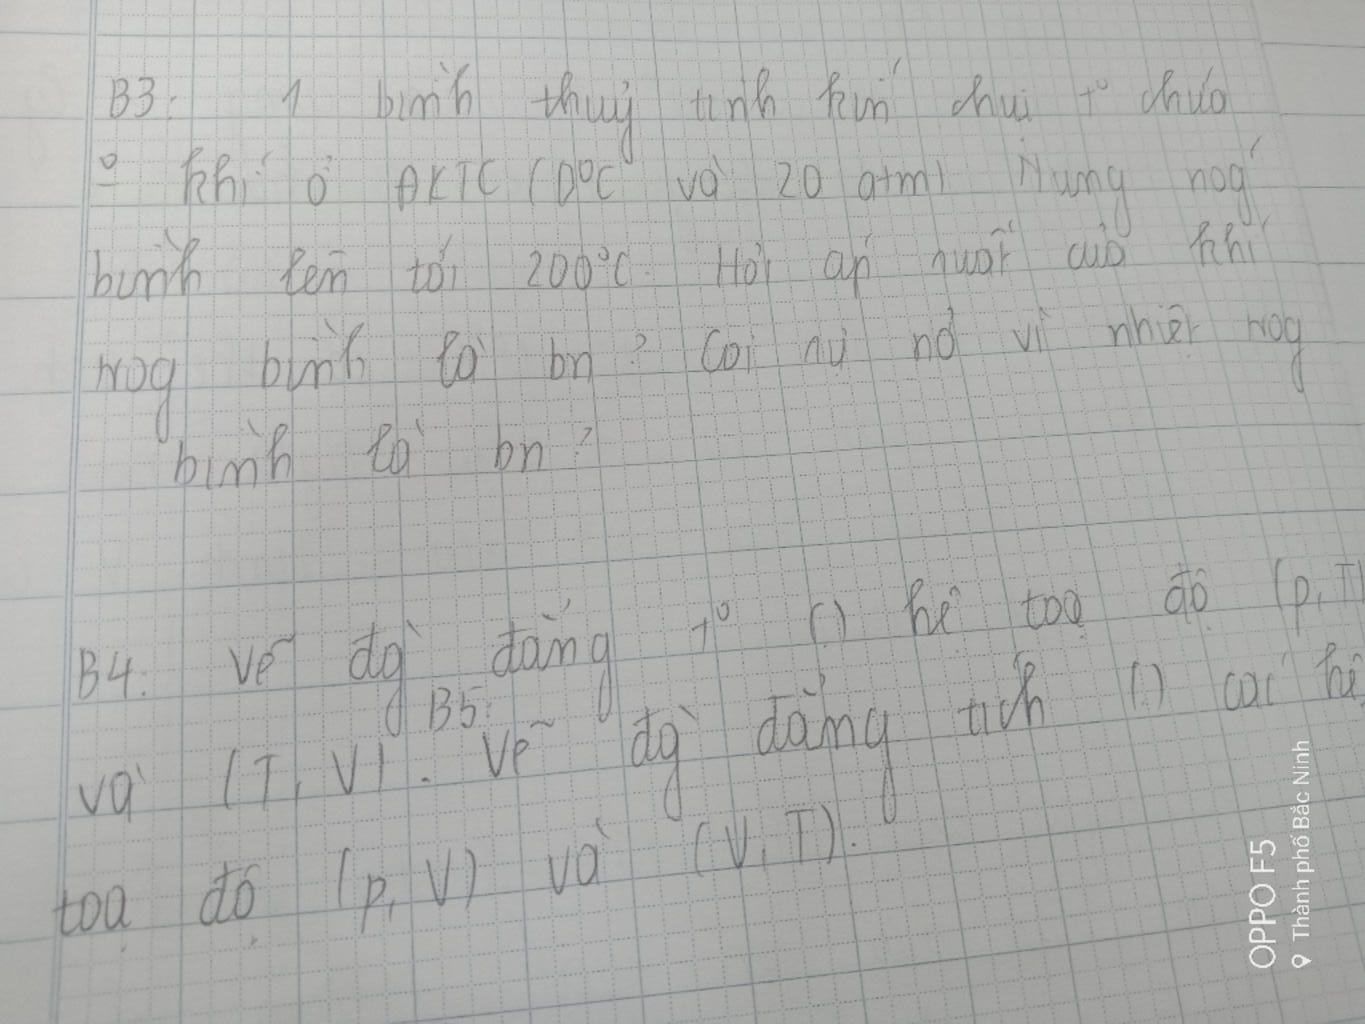 B3: 1 bình thuỷ tinh kín chịu t° chứa
khí ở ĐKTC (0°C và 20 atm) Nung nog
bình lên tới 200°C. Hỏi áp suất của khí
trog bình là bn? Coi sự nở vì nhiệt trog
bình là bn?
B4: Vẽ đg đẳng t° () hệ toạ độ (p, T)
và (T, V). B5: Vẽ đg đẳng tích () các hệ
toạ độ (p, V) và (V, T).
OPPO F5
Thành phố Bắc Ninh